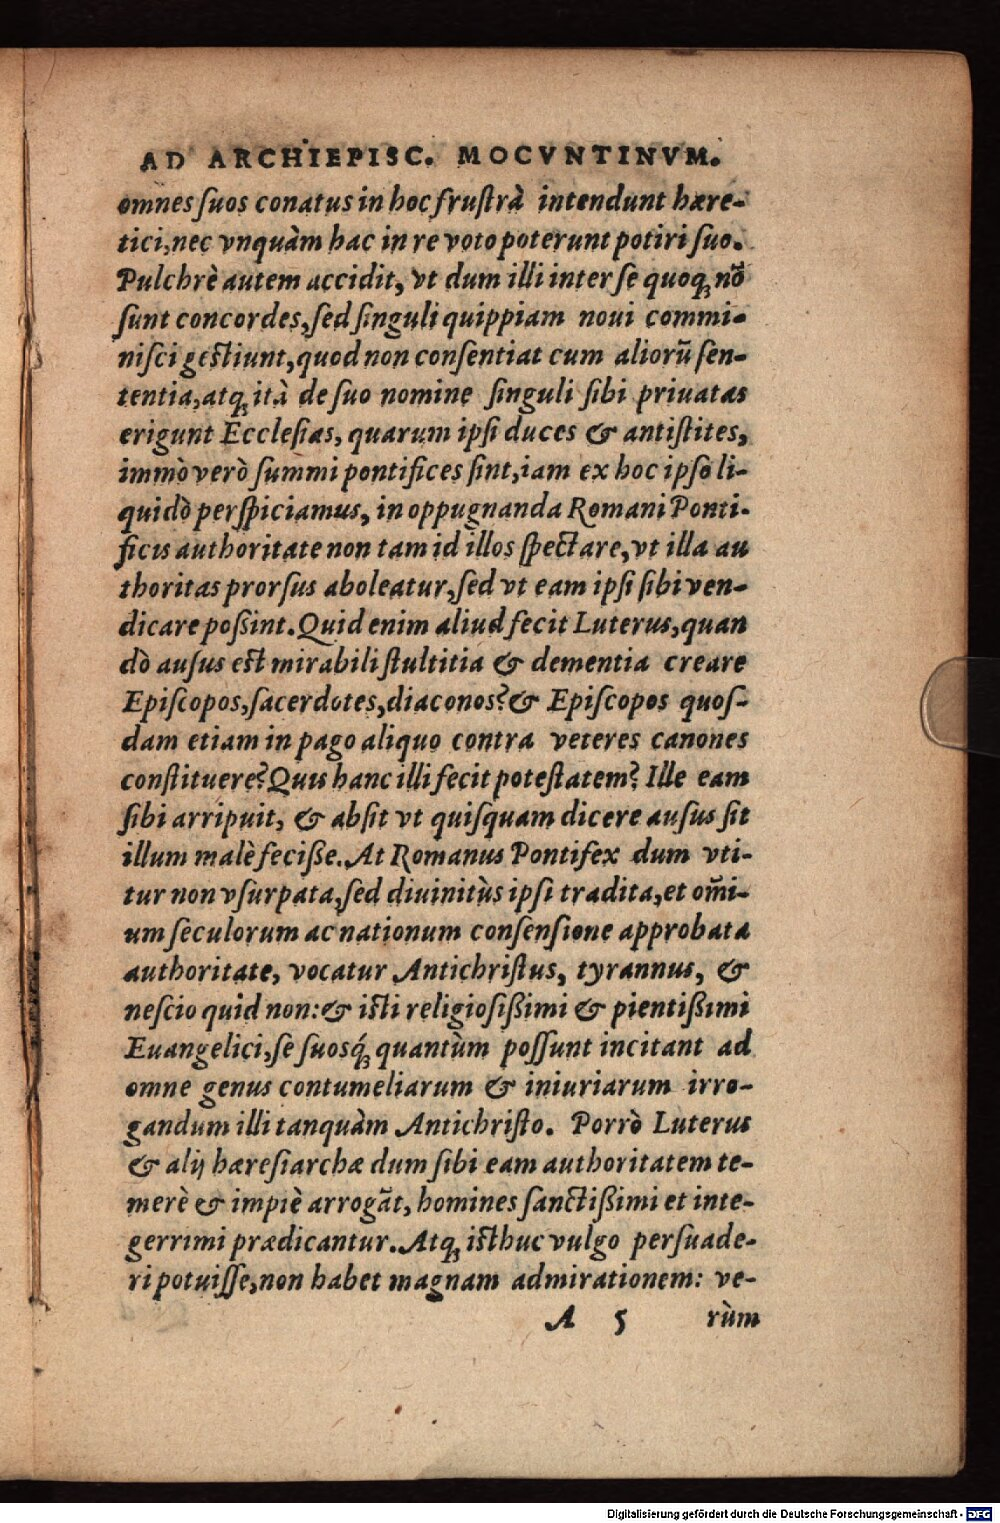 AD ARCHIEPISC. MOCVNTINVM.
omnes ſuos conatus in hoc fruſtrà intendunt hære-
tici, nec vnquàm hac in re voto poterunt potiri ſuo.
Pulchrè autem accidit, vt dum illi inter ſe quoq; nō
ſunt concordes, ſed ſinguli quippiam noui commi-
niſci geſtiunt, quod non conſentiat cum aliorũ ſen-
tentia, atq; ità de ſuo nomine ſinguli ſibi priuatas
erigunt Eccleſias, quarum ipſi duces & antiſtites,
immò verò ſummi pontifices ſint, iam ex hoc ipſo li-
quidò perſpiciamus, in oppugnanda Romani Ponti-
ficis authoritate non tam id illos ſpectare, vt illa au
thoritas prorſus aboleatur, ſed vt eam ipſi ſibi ven-
dicare poßint. Quid enim aliud fecit Luterus, quan
dò auſus eſt mirabili ſtultitia & dementia creare
Epiſcopos, ſacerdotes, diaconos? & Epiſcopos quoſ-
dam etiam in pago aliquo contra veteres canones
conſtituere? Quis hanc illi fecit poteſtatem? Ille eam
ſibi arripuit, & abſit vt quiſquam dicere auſus ſit
illum malè feciße. At Romanus Pontifex dum vti-
tur non vſurpata, ſed diuinitùs ipſi tradita, et om̄i-
um ſeculorum ac nationum conſenſione approbata
authoritate, vocatur Antichriſtus, tyrannus, &
neſcio quid non: & iſti religioſißimi & pientißimi
Euangelici, ſe ſuosq́; quantùm poſſunt incitant ad
omne genus contumeliarum & iniuriarum irro-
gandum illi tanquàm Antichriſto. Porrò Luterus
& alij hæreſiarchæ dum ſibi eam authoritatem te-
merè & impiè arrogãt, homines ſanctißimi et inte-
gerrimi prædicantur. Atq; iſthuc vulgo perſuade-
ri potuiſſe, non habet magnam admirationem: ve-
A 5 rùm
Digitalisierung gefördert durch die Deutsche Forschungsgemeinschaft - DFG